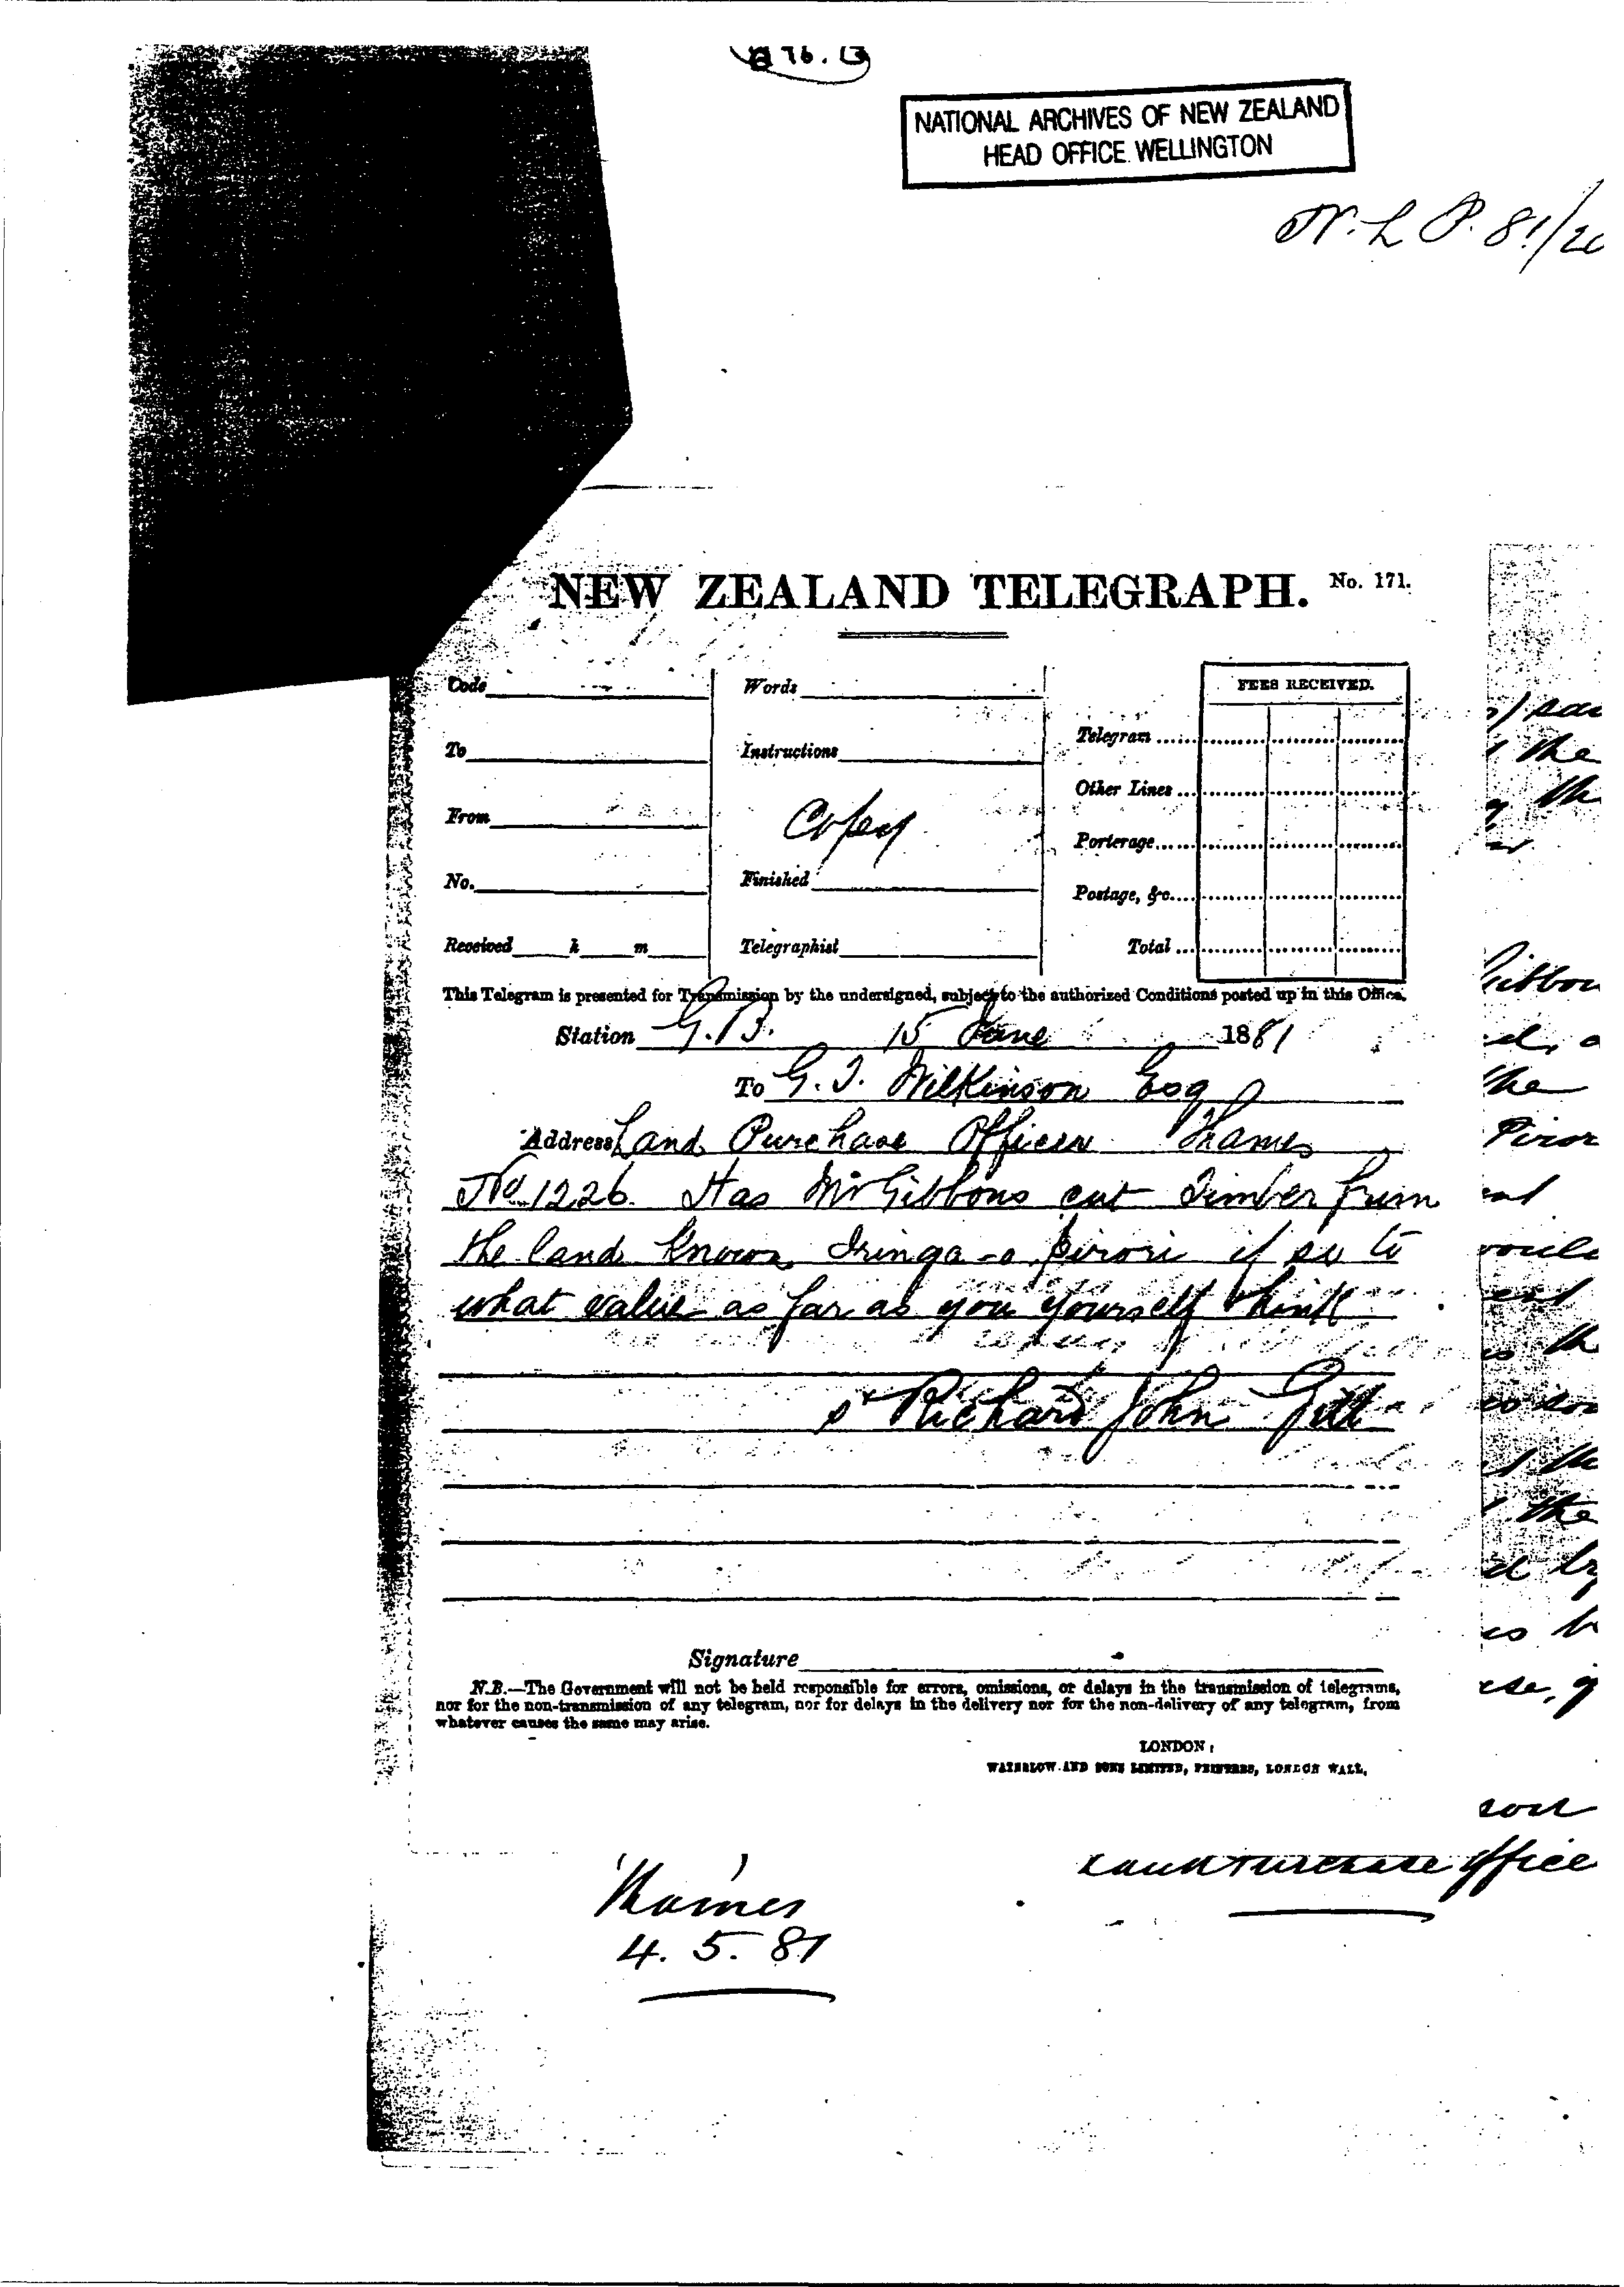 NATIONAL ARCHIVES OF NEW ZEALAND
HEAD OFFICE WELLINGTON
N.L.P. 81/20
NEW ZEALAND TELEGRAPH. No. 171.
Code Words FEES RECEIVED.
To Instructions Telegram
Other Lines
From Copy
Porterage
No. Finished
Postage, &c.
Received h m Telegraphist Total
This Telegram is presented for Transmission by the undersigned, subject to the authorized Conditions posted up in this Office.
Station G.B. 15 June 1881
To G. T. Wilkinson Esq
Address Land Purchase Officer Thames
No 1226. Has Mr Gibbons cut Timber from
the land known Iringa-o-pirori if so to
what value as far as you yourself think
Richard John Gill
Signature
N.B.—The Government will not be held responsible for errors, omissions, or delays in the transmission of telegrams,
nor for the non-transmission of any telegram, nor for delays in the delivery nor for the non-delivery of any telegram, from
whatever causes the same may arise.
LONDON:
WATERLOW AND SONS LIMITED, PRINTERS, LONDON WALL.
Land Purchase Office
Thames
4. 5. 81
the
the